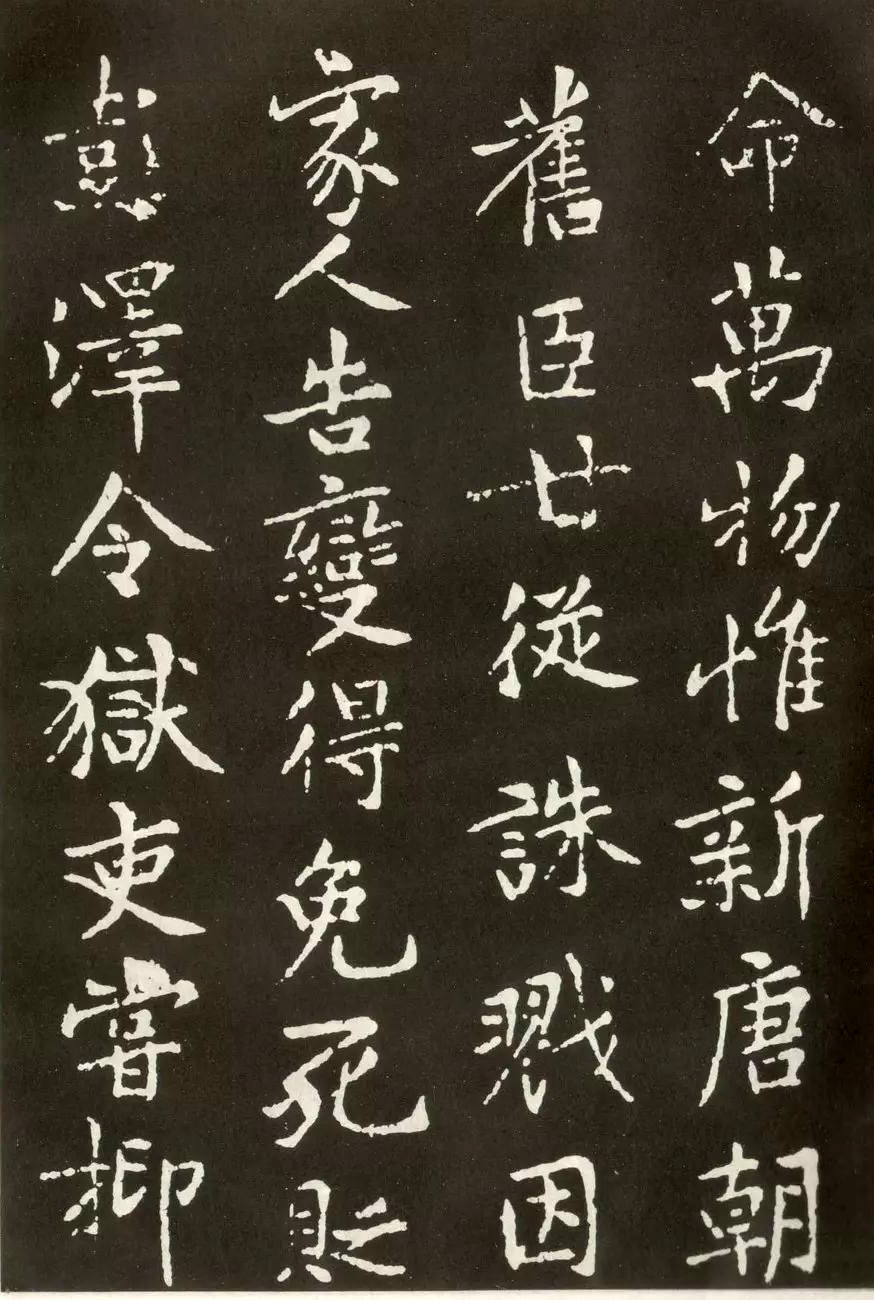 命萬物惟新唐朝
舊臣甘從誅戮因
家人告變得免死貶
彭澤令獄吏嘗抑